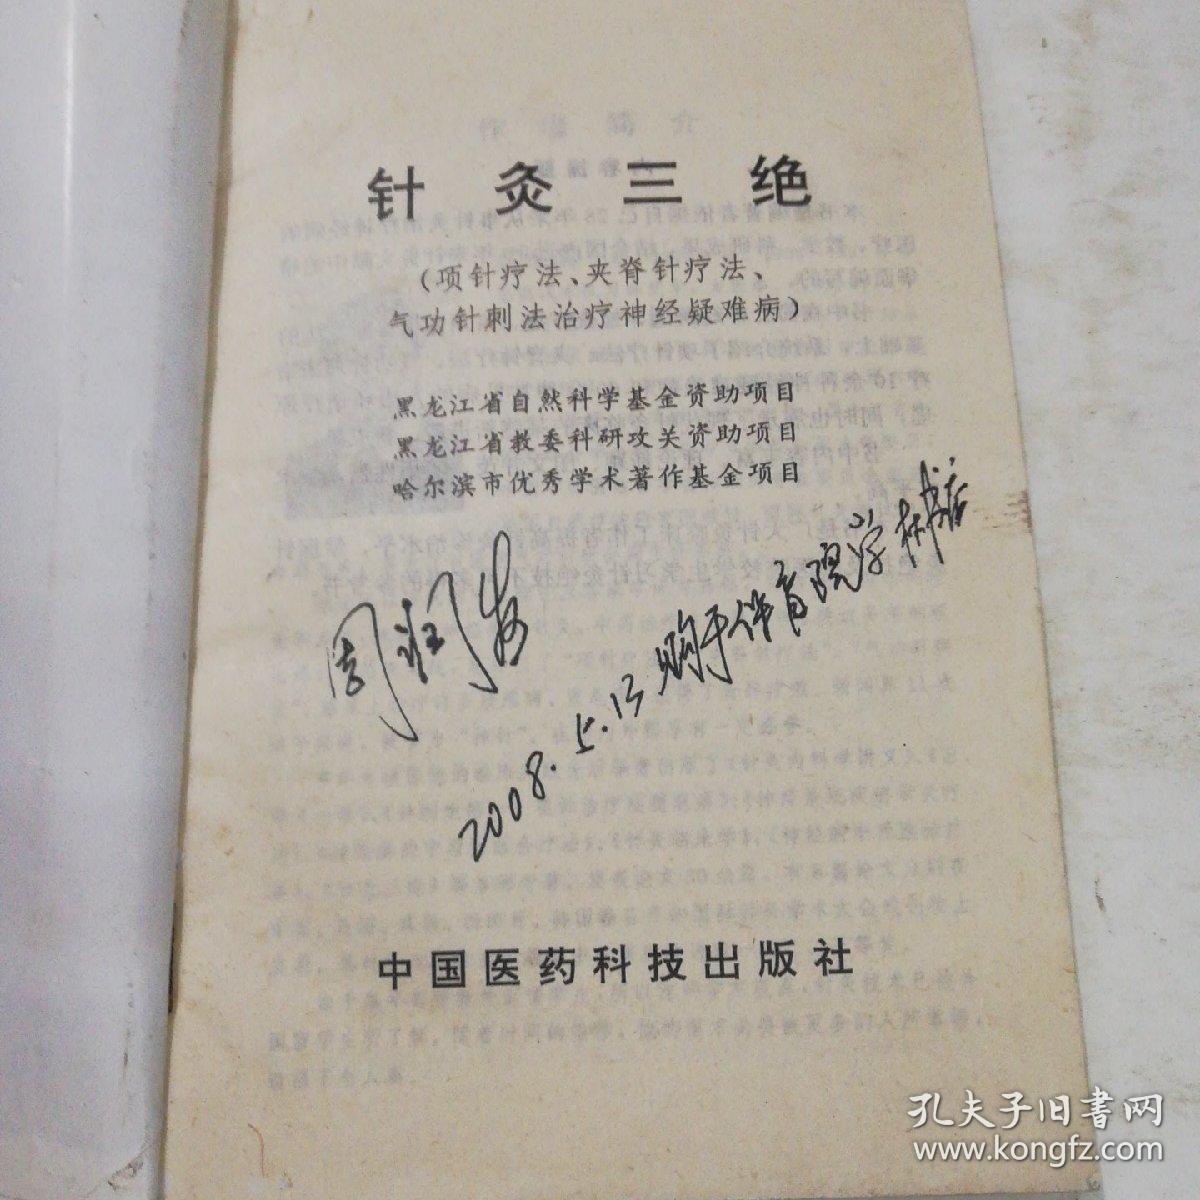 针灸三绝
(项针疗法、夹脊针疗法、
气功针刺法治疗神经疑难病)
黑龙江省自然科学基金资助项目
黑龙江省教委科研攻关资助项目
哈尔滨市优秀学术著作基金项目
周
2008.5.13购于体育院学林书店
中国医药科技出版社
孔夫子旧书网
www.kongfz.com